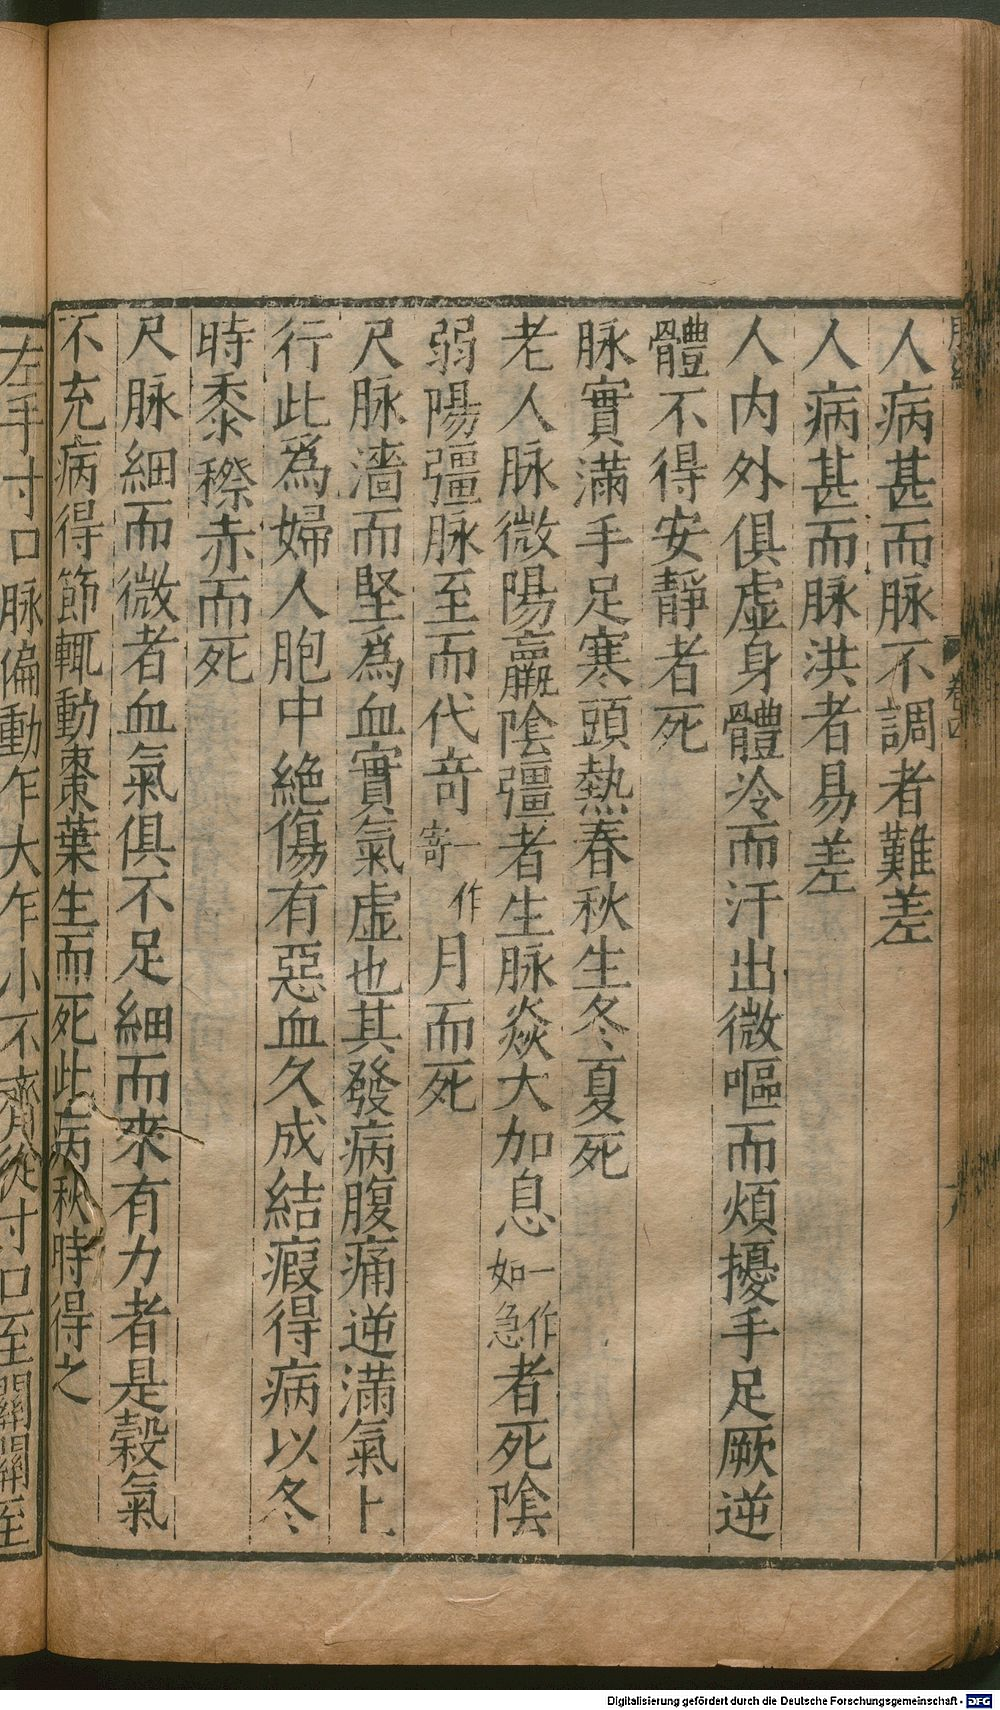 人病甚而脉不調者難差
人病甚而脉洪者易差
人内外俱虛身體冷而汗出微嘔而煩擾手足厥逆
體不得安靜者死
脉實滿手足寒頭熱春秋生冬夏死
老人脉微陽羸陰彊者生脉焱大加息一作如急者死陰
弱陽彊脉至而代竒一作寄月而死
尺脉濇而堅爲血實氣虛也其發病腹痛逆滿氣上
行此爲婦人胞中絶傷有惡血久成結瘕得病以冬
時黍穄赤而死
尺脉細而微者血氣俱不足細而來有力者是穀氣
不充病得節輒動棗葉生而死此病秋時得之
左手寸口脉偏動乍大乍小不齊從寸口至關關至
卷四
Digitalisierung gefördert durch die Deutsche Forschungsgemeinschaft - DFG